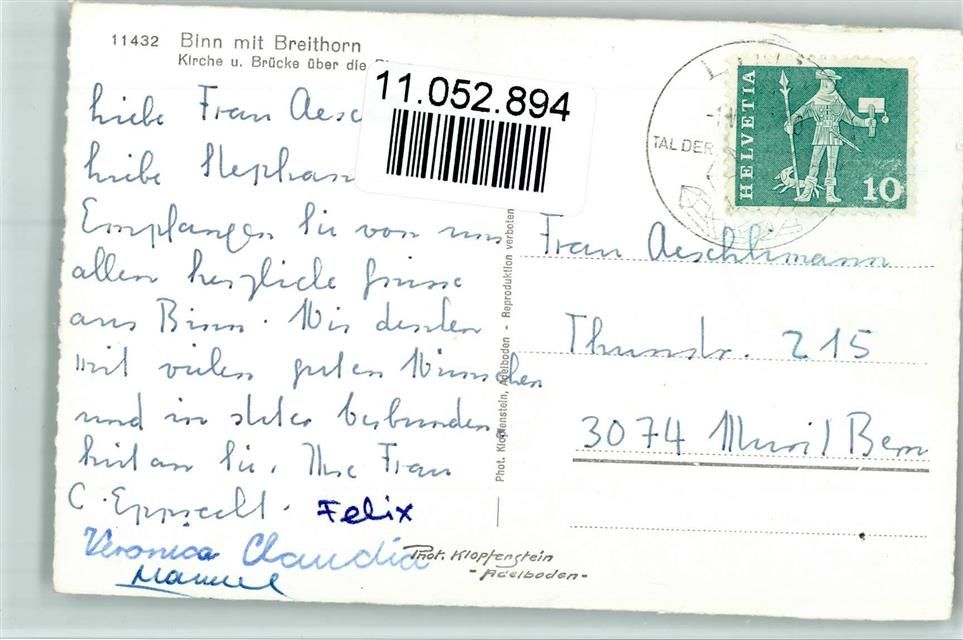 11432 Binn mit Breithorn
Kirche u. Brücke über die
11.052.894
Liebe Frau Aesc
Liebe Stephan
Empfangen Sie von uns
allen herzliche Grüsse
aus Binn. Wir denken
mit vielen guten Wünschen
und in steter Verbunden
heit an Sie. Ihre Frau
C. Epprecht. Felix
Veronica Claudia
Manuel
Phot. Klopfenstein
- Adelboden -
Phot. Klopfenstein, Adelboden - Reproduktion verboten
TAL DER
HELVETIA
10
Frau Aeschlimann
Thunstr. 215
3074 Muri/Bern